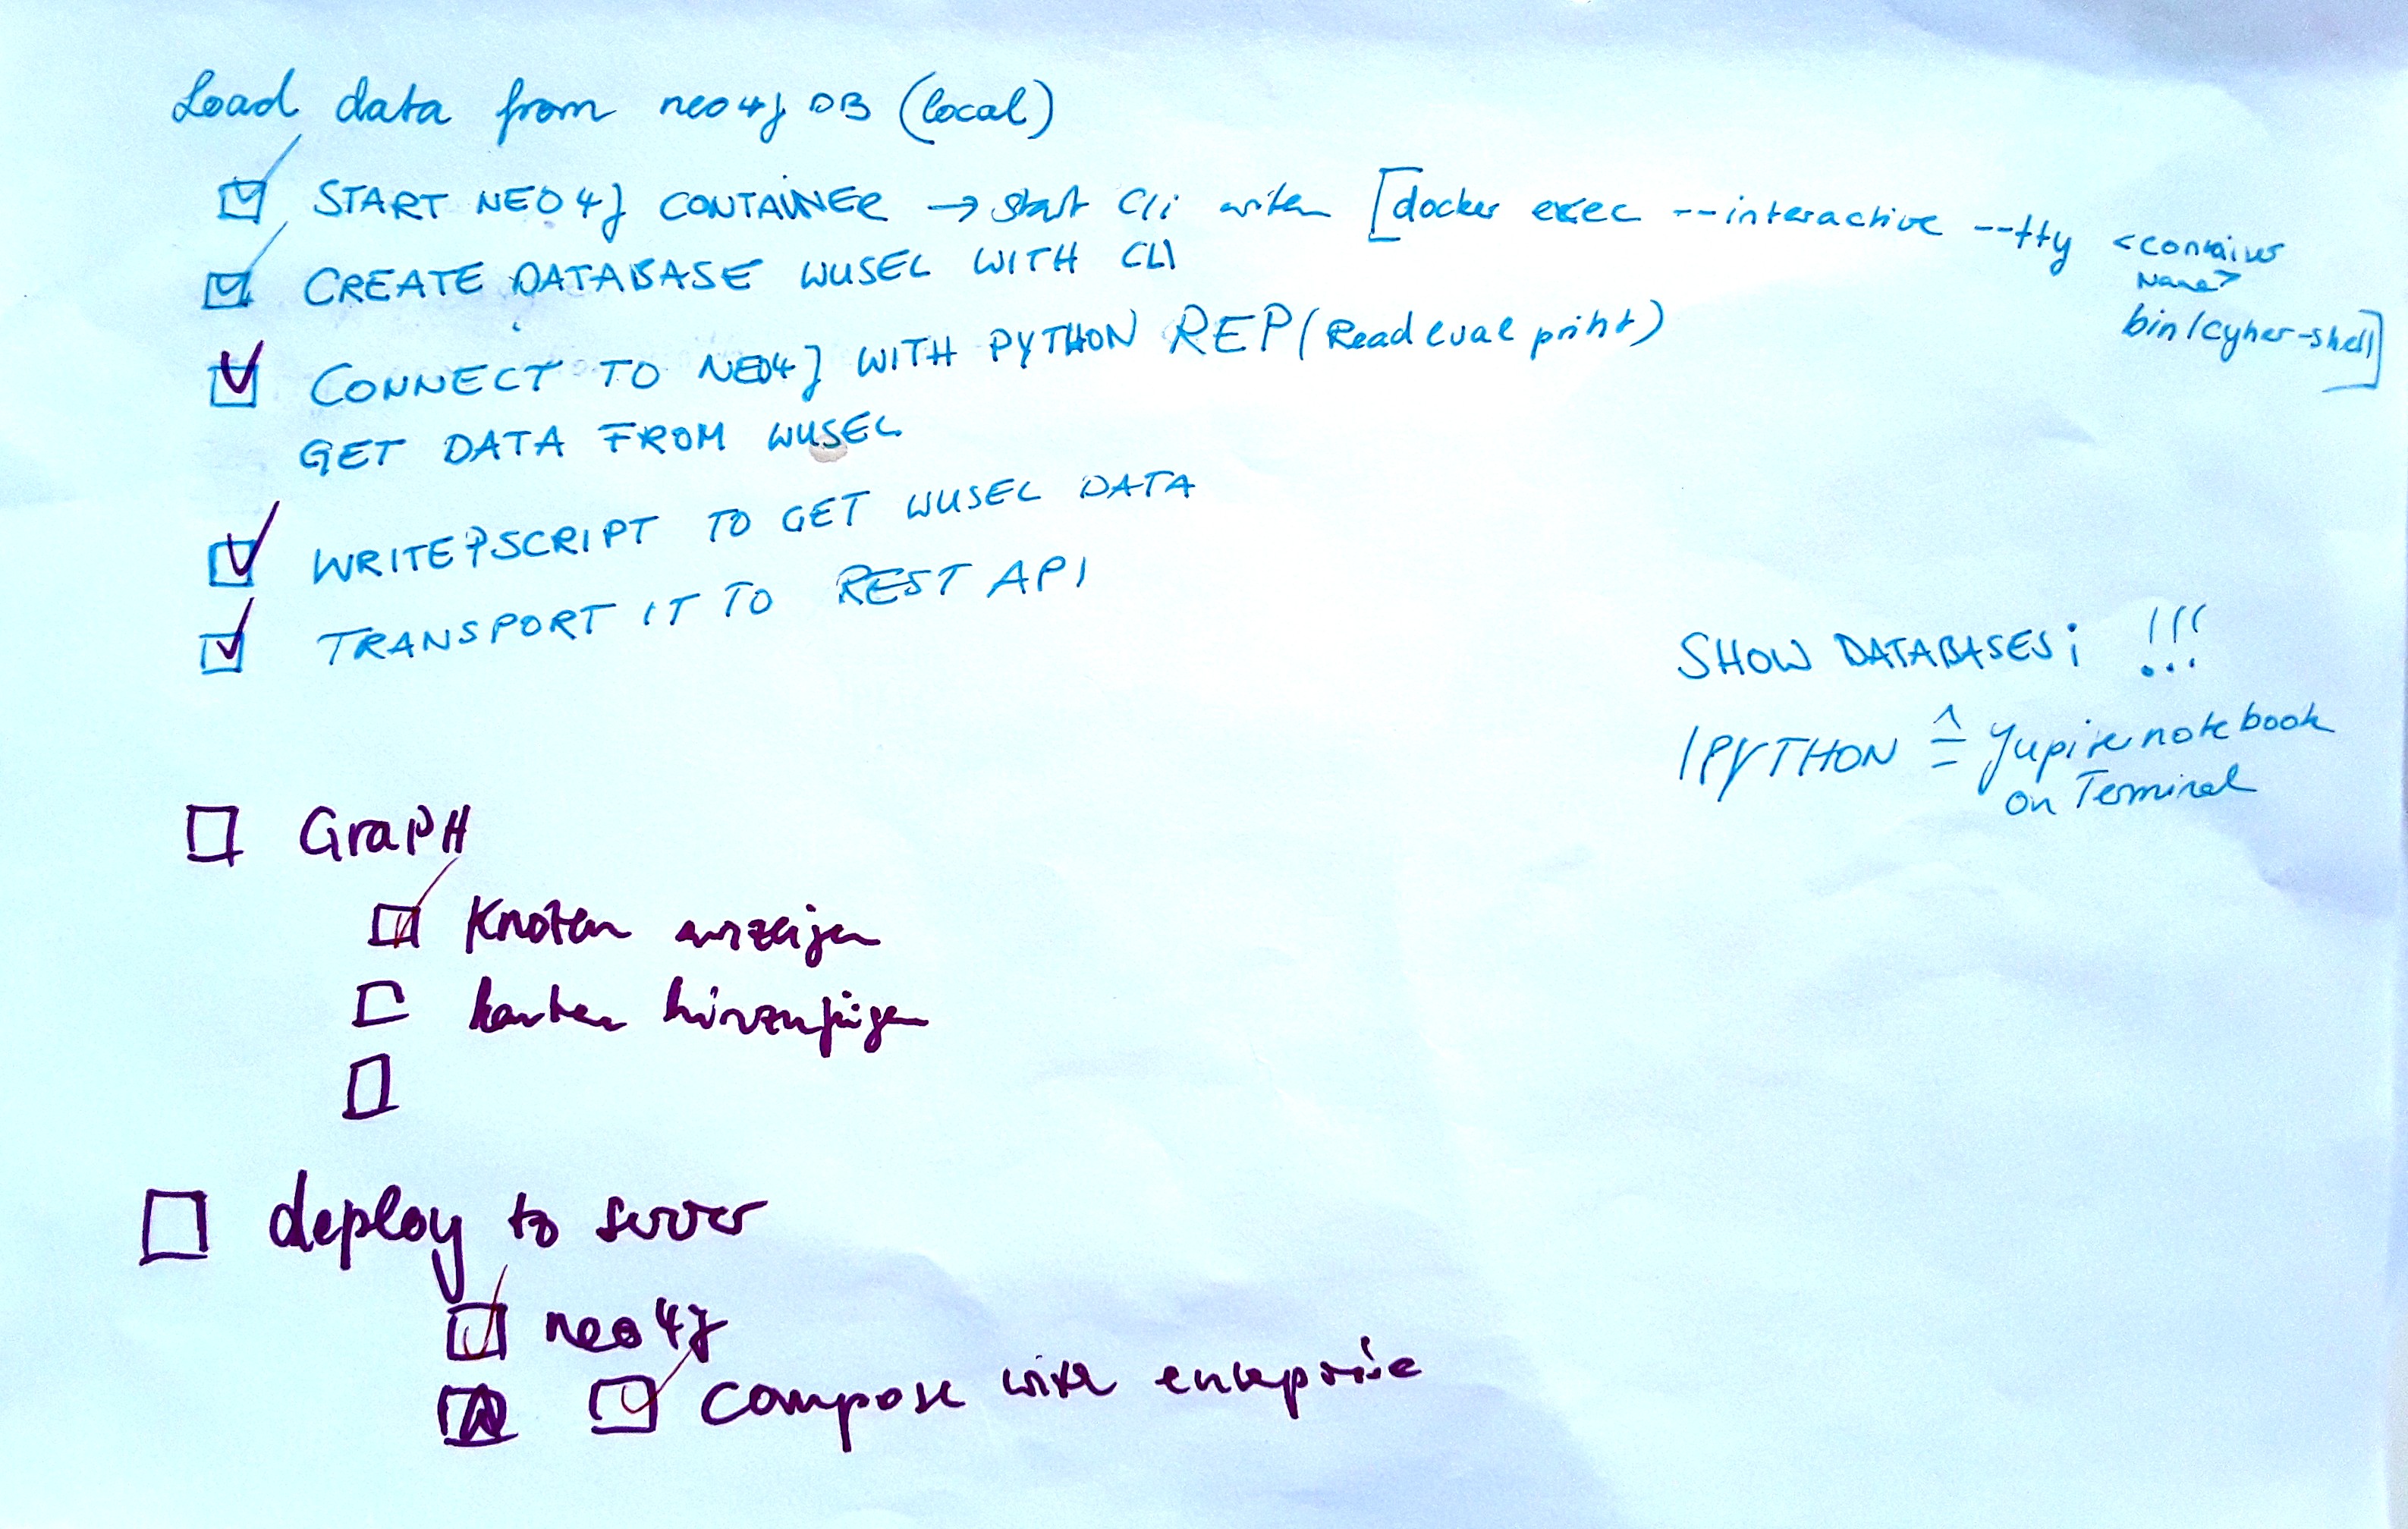 Load data from neo4j DB (local)
START NEO4j CONTAINER → start Cli with [docker exec --interactive --tty <container
Name>
bin/cyher-shell]
CREATE DATABASE WUSEL WITH CLI
CONNECT TO NEO4j WITH PYTHON REP (Read eval print)
GET DATA FROM WUSEL
WRITE PSCRIPT TO GET WUSEL DATA
TRANSPORT IT TO REST API
SHOW DATABASES; !!!
IPYTHON ≙ Jupiternotebook
on Terminal
GraPH
Knoten anzeigen
kanten hinzufügen
deploy to server
neo4j
compose with enterprise